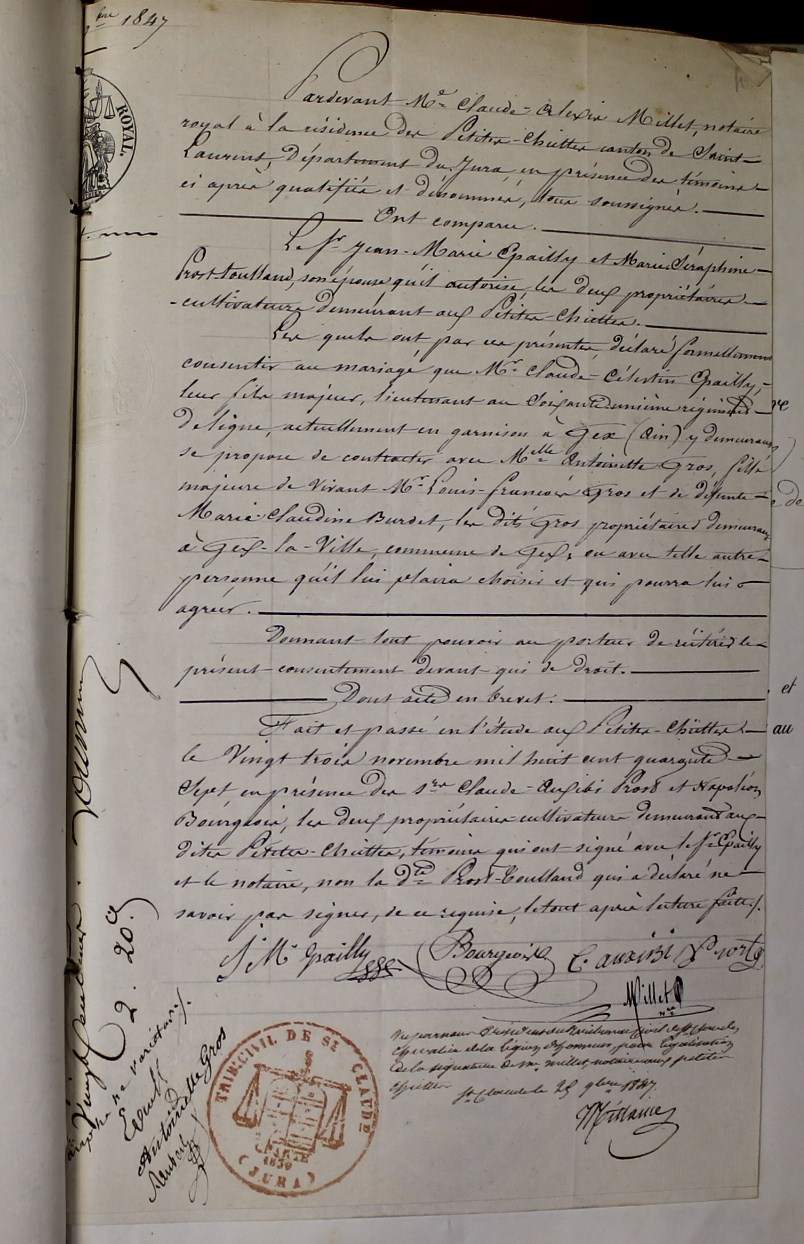 bre 1847
ROYAL.
Pardevant Me Claude-Alexis Millet, notaire
royal à la résidence des Petites-Chiettes canton de Saint-
Laurent, Département du Jura, en présence des témoins
ci après qualifiés et dénommés, tous soussignés.
Ont comparu.
Le Sr Jean-Marie Epailly et Marie Séraphine
Prost-Toulland, son épouse qu'il autorise, les deux propriétaires
-cultivateurs demeurant aux Petites-Chiettes.
Les quels ont par ces présentes, déclaré formellement
consentir au mariage que Mr Claude-Célestin Epailly,
leur fils majeur, lieutenant au Soixante unième régiment
de ligne, actuellement en garnison à Gex (Ain) y demeurant
se propose de contracter avec Melle Antoinette Gros, fille
majeure de vivant Mr Louis-françois Gros et de défunte
Marie-Claudine Burdet, les dits Gros propriétaires demeurant
à Gex-la-Ville, commune de Gex, ou avec telle autre
personne qu'il lui plaira choisir et qui pourra lui
agréer.
Donnant tout pouvoir au porteur de réitérer le
présent consentement devant qui de droit.
Dont acte en brevet :
Fait et passé en l'étude aux Petites-Chiettes
le Vingt trois novembre mil huit cent quarante
sept, en présence des srs Claude-Auxibi Prost et Napoléon
Bourgeois, les deux propriétaires-cultivateurs demeurant aux
dites Petites-Chiettes, témoins qui ont signé avec le Sr Epailly
et le notaire, non la dte Prost-Toulland qui a déclaré ne
savoir pas signer, de ce requise, le tout après lecture faite.
J M Epailly Bourgeois C. auxibi Prost
Millet
Vu par nous Président du Tribunal civil de St Claude
Chevalier de la légion d'honneur, pour légalisation
de la signature de Me Millet, notaire aux petites
chiettes
St Claude le 25 9bre 1847
TRIB. CIVIL DE ST CLAUDE
CHARTE
1830
(JURA)
2. 20c
ne varietur
Epailly
Antoinette Gros
et
au
de